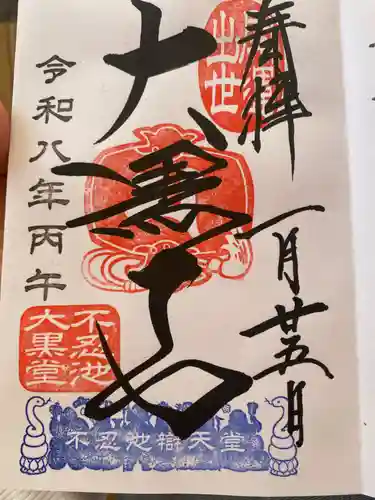 奉拝
一月廿五月
大黒天
令和八年丙午
出世
不忍池
大黒堂
不忍池辯天堂